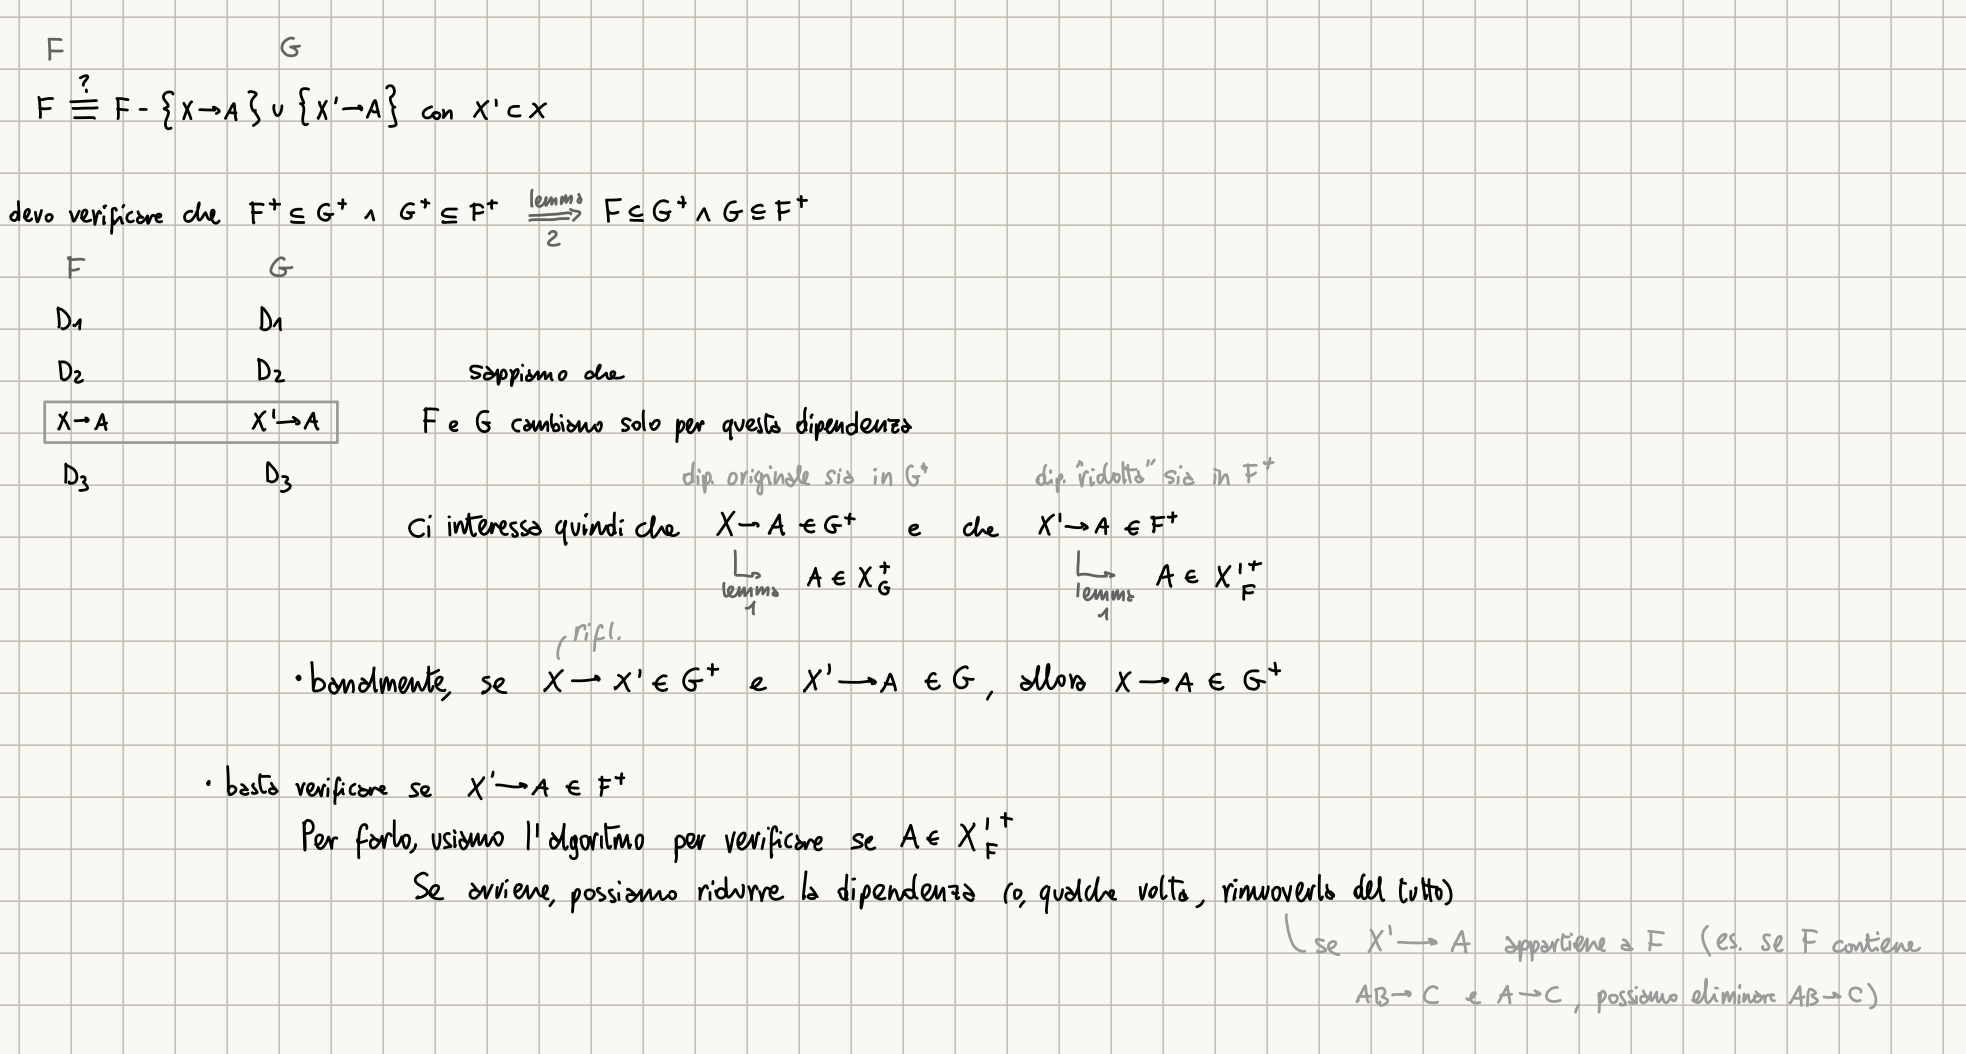 F G
F ≡? F - {X→A} ∪ {X'→A} con X' ⊂ X
devo verificare che F⁺ ⊆ G⁺ ∧ G⁺ ⊆ F⁺ lemma 2 ⟹ F ⊆ G⁺ ∧ G ⊆ F⁺
F G
D1 D1
D2 D2 sappiamo che
X→A X'→A F e G cambiano solo per questa dipendenza
D3 D3 dip. originale sia in G⁺ dip. "ridotta" sia in F⁺
Ci interessa quindi che X→A ∈ G⁺ e che X'→A ∈ F⁺
lemma 1 A ∈ X⁺_G lemma 1 A ∈ X'⁺_F
rifl.
• banalmente, se X→X' ∈ G⁺ e X'→A ∈ G, allora X→A ∈ G⁺
• basta verificare se X'→A ∈ F⁺
Per farlo, usiamo l'algoritmo per verificare se A ∈ X'⁺_F
Se avviene, possiamo ridurre la dipendenza (o, qualche volta, rimuoverla del tutto)
se X'→A appartiene a F (es. se F contiene
AB→C e A→C, possiamo eliminare AB→C)